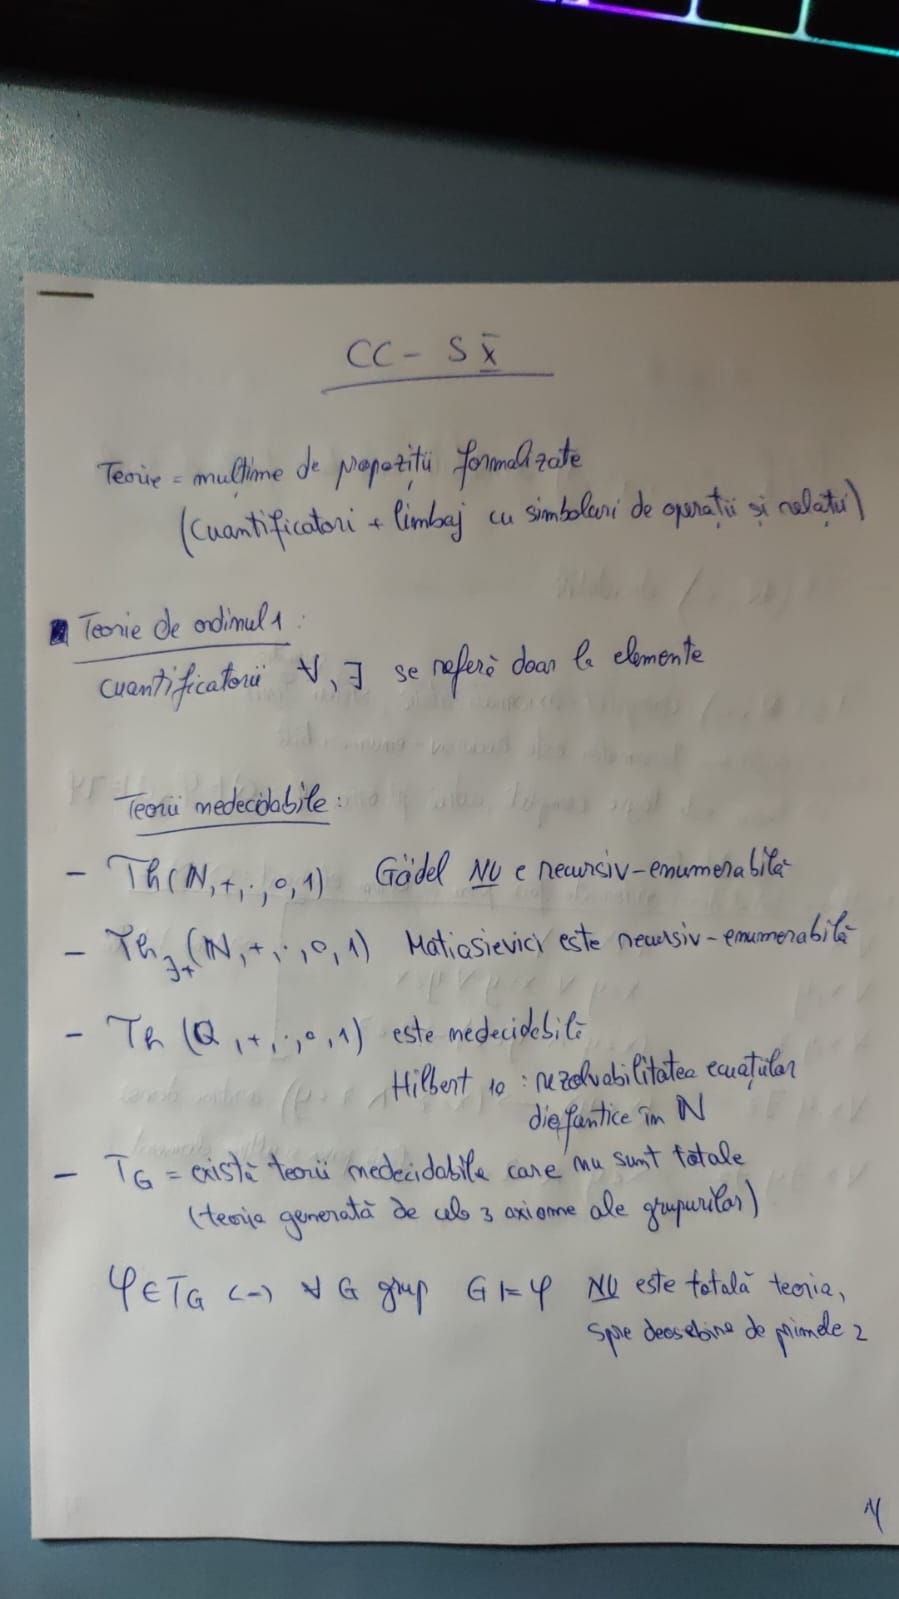 CC - S X̄
Teorie = mulțime de propoziții formalizate
(cuantificatori + limbaj cu simboluri de operații și relații)
Teorie de ordinul 1:
cuantificatorii ∀, ∃ se referă doar la elemente
Teorii nedecidabile:
- Th(ℕ,+,·,0,1) Gödel NU e recursiv-enumerabilă
- Th∃+(ℕ,+,·,0,1) Matiasievici este recursiv-enumerabilă
- Th(Q,+,·,0,1) este nedecidebilă
Hilbert 10: rezolvabilitatea ecuațiilor
diofantice în ℕ
- TG = există teorii nedecidabile care nu sunt totale
(teoria generată de cele 3 axiome ale grupurilor)
φ∈TG <-> ∀ G grup G ⊨ φ NU este totală teoria,
spre deosebire de primele 2
1